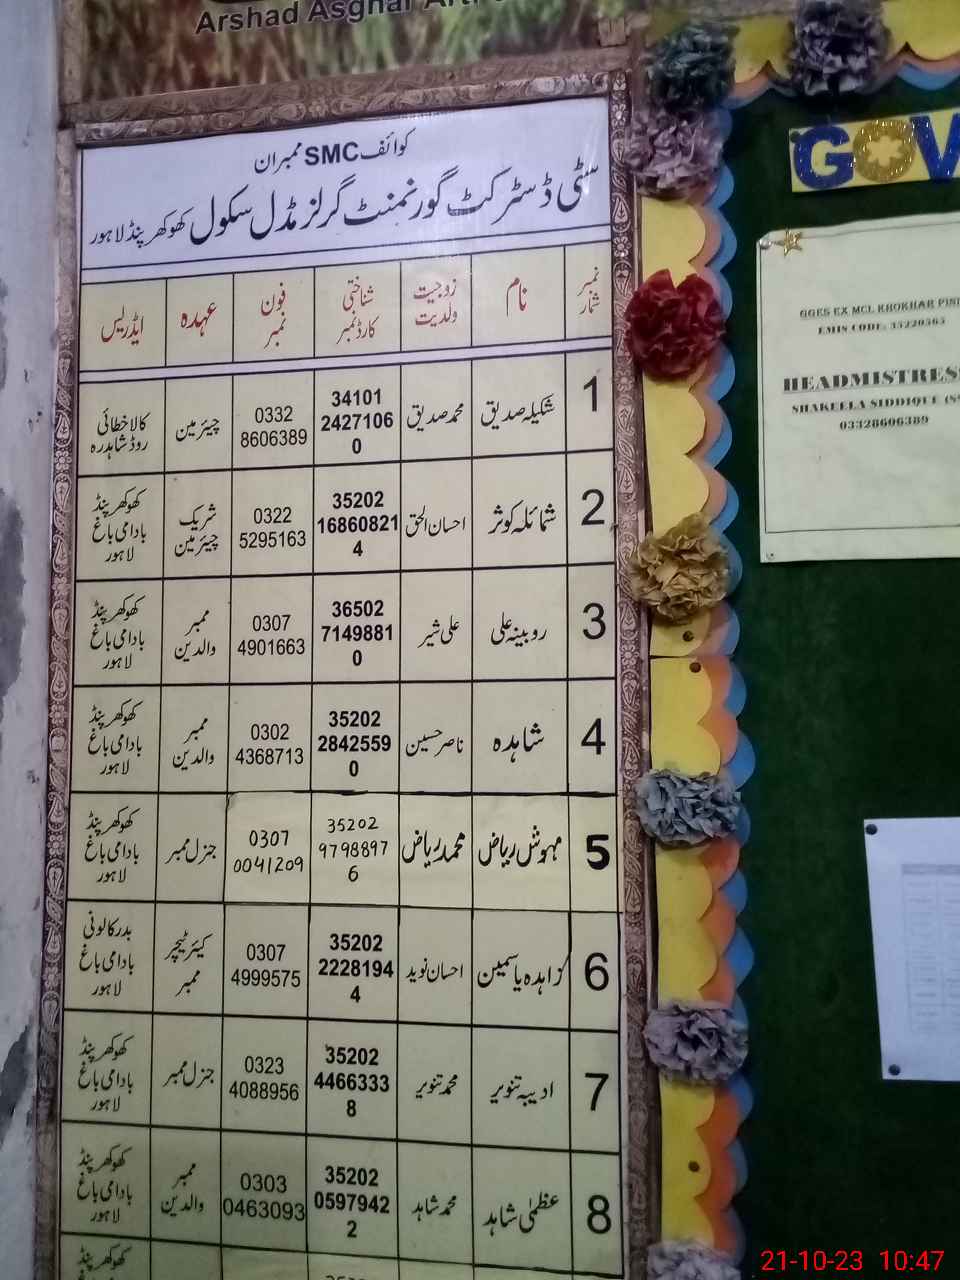 Arshad Asghar
کوائف SMC ممبران
سٹی ڈسٹرکٹ گورنمنٹ گرلز مڈل سکول کھوکھر پنڈ لاہور
نمبر شمار نام زوجیت ولدیت شناختی کارڈ نمبر فون نمبر عہدہ ایڈریس
1 شکیلہ صدیق محمد صدیق 34101 2427106 0 0332 8606389 چیئرمین کالا خطائی روڈ شاہدرہ
2 شمائلہ کوثر احسان الحق 35202 16860821 4 0322 5295163 شریک چیئرمین کھوکھر پنڈ بادامی باغ لاہور
3 روبینہ علی علی شیر 36502 7149881 0 0307 4901663 ممبر والدین کھوکھر پنڈ بادامی باغ لاہور
4 شاہدہ ناصر حسین 35202 2842559 0 0302 4368713 ممبر والدین کھوکھر پنڈ بادامی باغ لاہور
5 مہوش ریاض محمد ریاض 35202 9798897 6 0307 0041209 جنرل ممبر کھوکھر پنڈ بادامی باغ لاہور
6 زاہدہ یاسمین احسان نوید 35202 2228194 4 0307 4999575 کیئر ٹیچر ممبر بدر کالونی بادامی باغ لاہور
7 ادیبہ تنویر محمد تنویر 35202 4466333 8 0323 4088956 جنرل ممبر کھوکھر پنڈ بادامی باغ لاہور
8 عظمیٰ شاہد محمد شاہد 35202 0597942 2 0303 0463093 ممبر والدین کھوکھر پنڈ بادامی باغ لاہور
کھوکھر پنڈ
GOV
GGES EX MCL KHOKHAR PIND
EMIS CODE: 35220565
HEADMISTRESS
SHAKEELA SIDDIQUE
03328606389
21-10-23 10:47